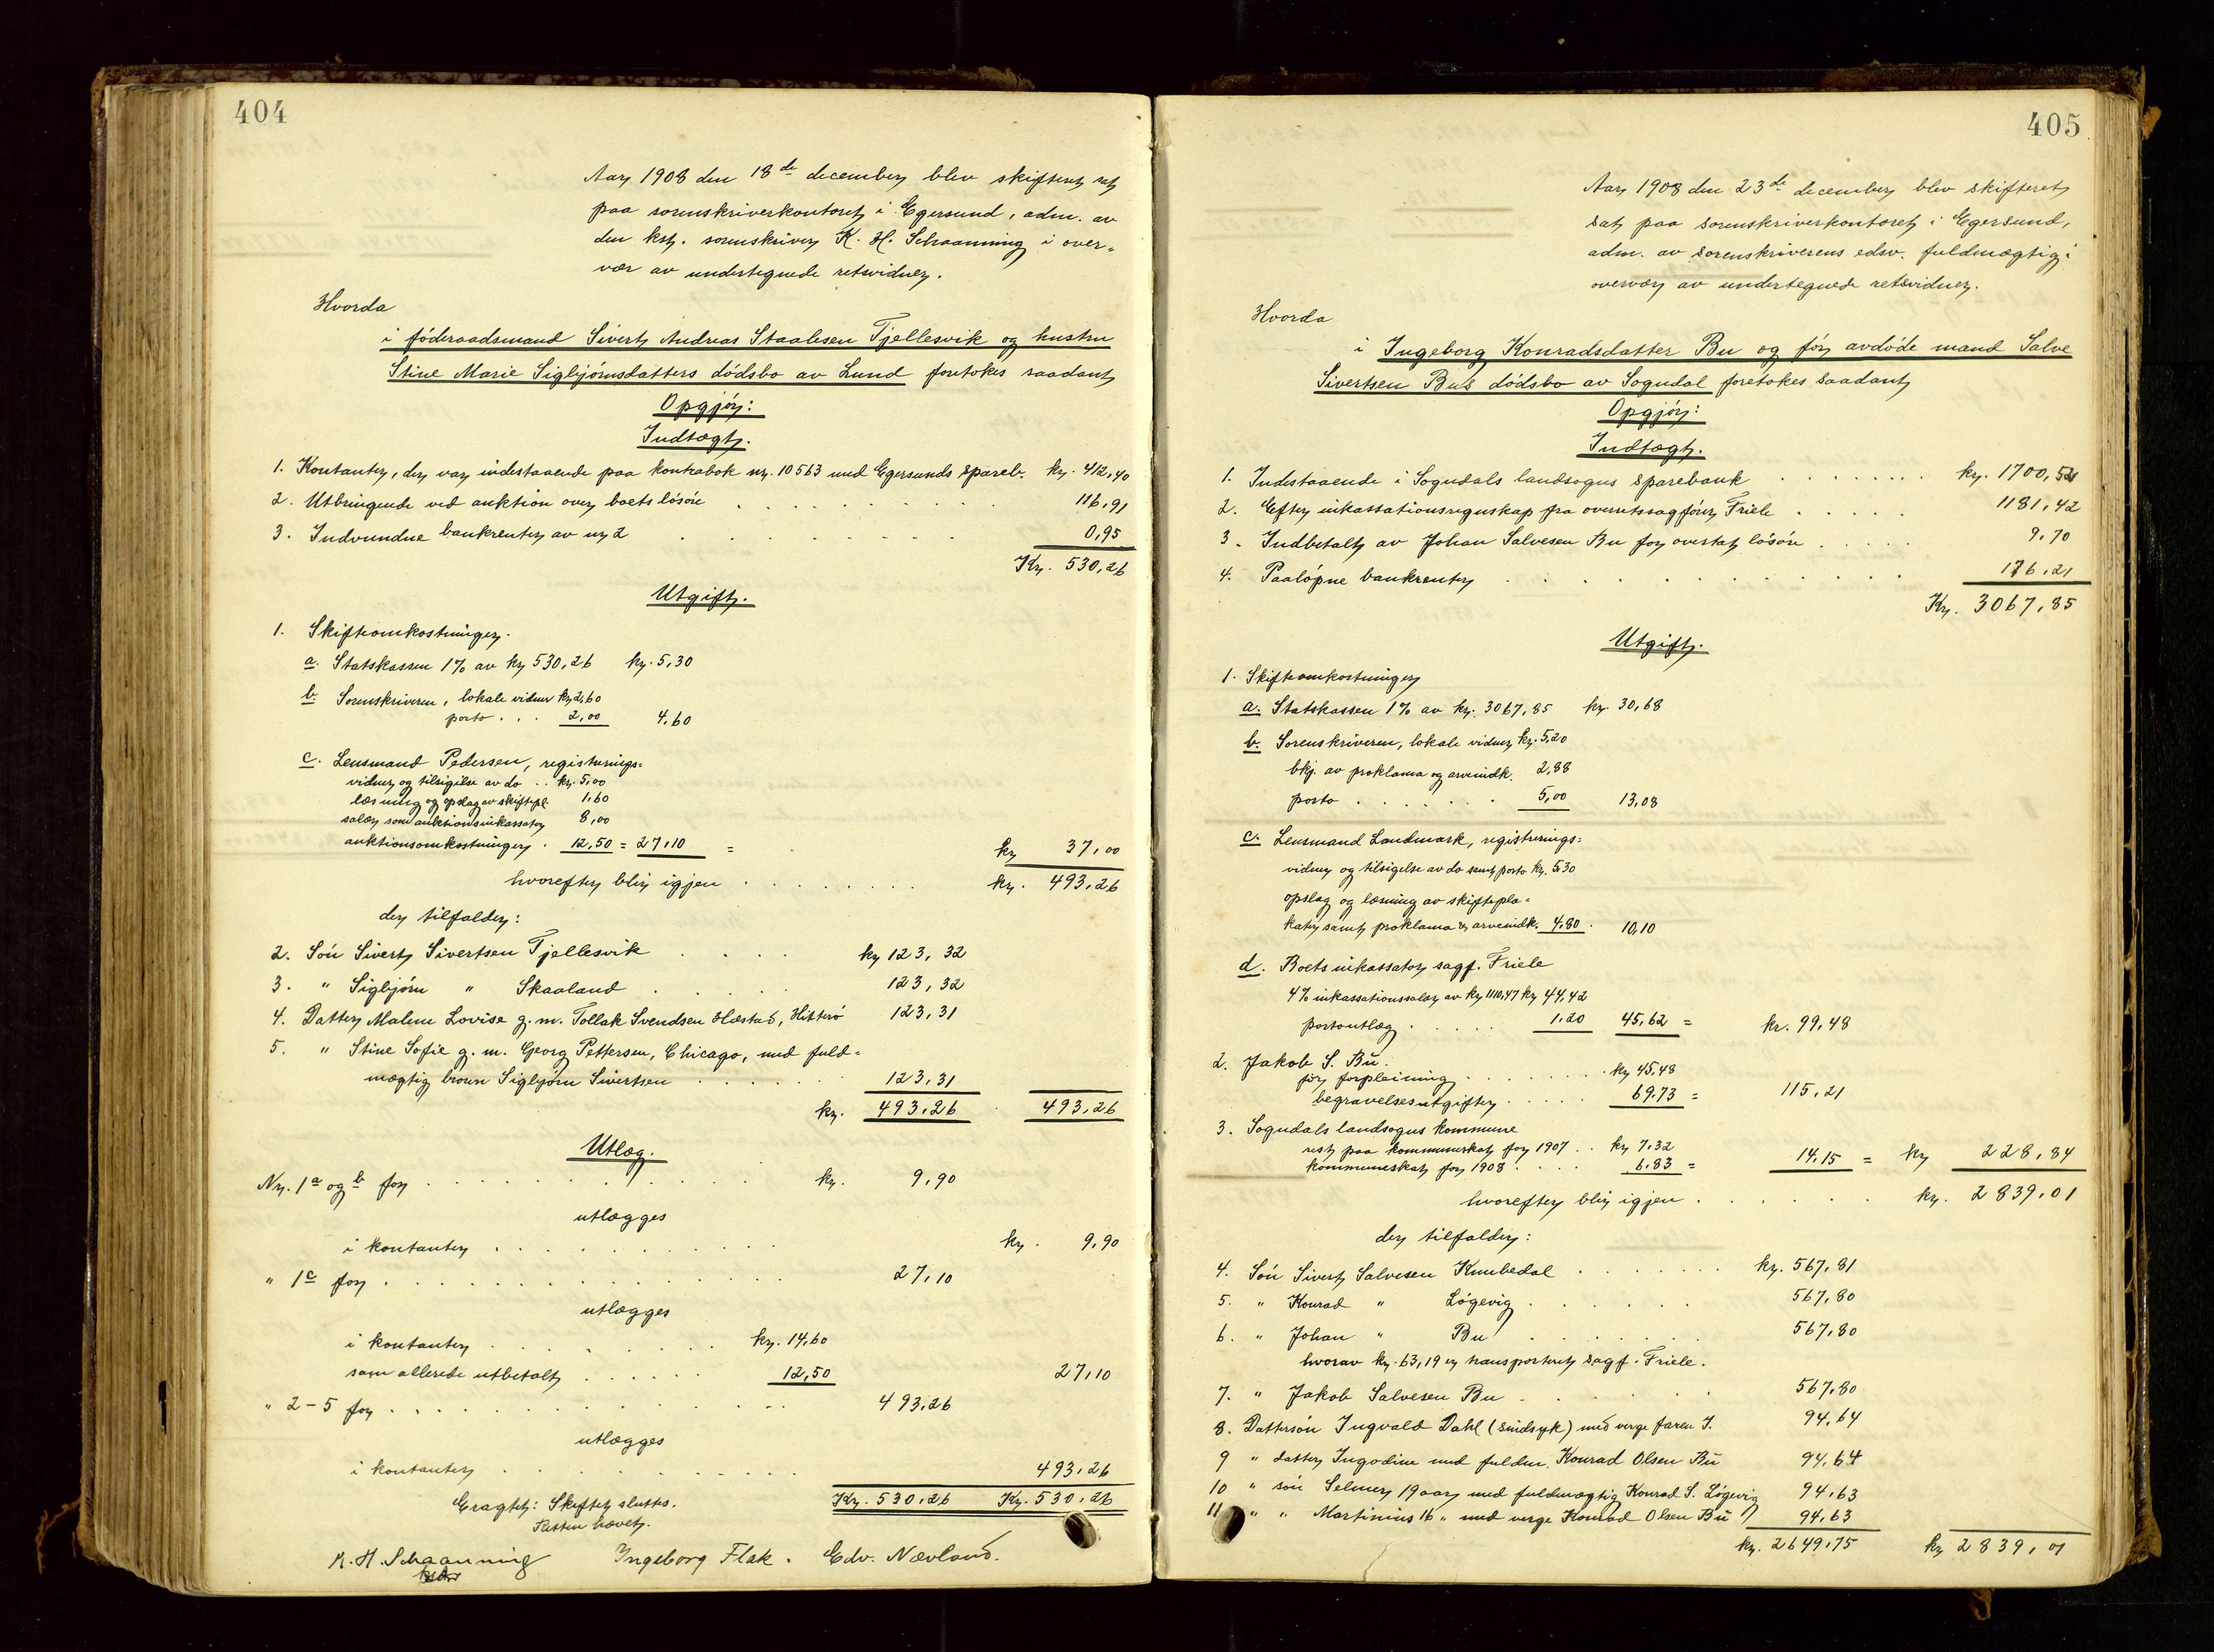 404
Aar 1908 den 18de december blev skifteret sat
paa sorenskriverkontoret i Egersund, adm. av
den kst. sorenskriver K. H. Schaanning i over-
vær av undertegnede retsvidner.
Hvorda
i føderaadsmand Sivert Andreas Staalesen Tjellesvik og hustru
Stine Marie Sigbjørnsdatters dødsbo av Lund foretokes saadant
Opgjør:
Indtægt.
1. Kontanter, der var indestaaende paa kontrabok nr. 10563 med Egersunds spareb. kr. 412,40
2. Utbringende ved auktion over boets løsøre . . . . . . . 116,91
3. Indvundne bankrenter av nr 2 . . . . . . . 0,95
Kr. 530,26
Utgift.
1. Skifteomkostninger.
a. Statskassen 1% av kr 530,26 kr. 5,30
b. Sorenskriveren, lokale vidner kr 2,60
porto . . . 2,00 4,60
c. Lensmand Pedersen, registrerings=
vidner og tilsigelse av do . . kr. 5,00
læsning og opslag av skiftepl. 1,60
salær som auktionsinkassator 8,00
auktionsomkostninger . 12,50 = 27,10 = kr 37,00
hvorefter blir igjen . . . . . . . kr. 493,26
der tilfalder:
2. Søn Sivert Sivertsen Tjellesvik . . . . kr 123,32
3. " Sigbjørn " Skaaland . . . . 123,32
4. Datter Malene Lovise g. m. Tollak Svendsen Hæstad, Hitterø 123,31
5. " Stine Sofie g. m. Georg Pettersen, Chicago, med fuld=
mægtig broren Sigbjørn Sivertsen . . . . . 123,31
kr. 493,26 . 493,26
Utlæg.
Nr. 1a og b for . . . . . . . . . kr. 9,90
utlægges
i kontanter . . . . . . . . . kr. 9,90
" 1c for . . . . . . . . . 27,10
utlægges
i kontanter . . . . . . . kr. 14,60
som allerede utbetalt . . . . . . 12,50 27,10
" 2-5 for . . . . . . . . . 493,26
utlægges
i kontanter . . . . . . . . . 493,26
Kr. 530,26 Kr. 530,26
Eragtet: Skiftet sluttes.
Retten hævet.
K. H. Schaanning Ingeborg Flak. Edv. Nævland.
kst.
405
Aar 1908 den 23de december blev skifteret
sat paa sorenskriverkontoret i Egersund,
adm. av sorenskriverens edsv. fuldmægtig i
overvær av undertegnede retsvidner.
Hvorda
i Ingeborg Konradsdatter Bu og før avdøde mand Salve
Sivertsen Bu's dødsbo av Sogndal foretokes saadant
Opgjør:
Indtægt.
1. Indestaaende i Sogndals landsogns sparebank . . . . . . . kr. 1700,52
2. Efter inkassationsregnskap fra overretssagfører Friele . . . . . 1181,42
3. Indbetalt av Johan Salvesen Bu for overtat løsøre . . . . . 9,70
4. Paaløpne bankrenter . . . . . . . . . 176,21
Kr. 3067,85
Utgift.
1. Skifteomkostninger
a. Statskassen 1% av kr. 3067,85 kr. 30,68
b. Sorenskriveren, lokale vidner kr. 5,20
bkj. av proklama og arveindk. 2,88
porto . . . . . . . 5,00 13,08
c. Lensmand Landmark, registrerings=
vidner og tilsigelse av do samt porto kr. 5,30
opslag og læsning av skiftepla=
kater samt proklama & arveindk. 4,80 . 10,10
d. Boets inkassator sagf. Friele
4% inkassationssalær av kr 1110,47 kr 44,42
portoutlæg . . . . . 1,20 45,62 = kr. 99,48
2. Jakob S. Bu.
for forpleining . . . . . . . kr 45,48
begravelsesutgifter . . . . . 69,73 = 115,21
3. Sogndals landsogns kommune
rest paa kommuneskat for 1907 . . kr 7,32
kommuneskat for 1908 . . . . 6,83 = 14,15 = kr 228,84
hvorefter blir igjen . . . . . . kr. 2839,01
der tilfalder:
4. Søn Sivert Salvesen Knubedal . . . . . . . kr. 567,81
5. " Konrad " Løgevig . . . . . . 567,80
6. " Johan " Bu . . . . . . 567,80
hvorav kr. 63,19 er transporteret sagf. Friele.
7. " Jakob Salvesen Bu . . . . . . 567,80
8. Dattersøn Ingvald Dahl (sindsyk) med verge faren I. 94,64
9 " datter Ingodine med fuldm. Konrad Olsen Bu 94,64
10 " søn Selmer, 19 aar, med fuldmægtig Konrad S. Løgevig 94,63
11 " " Martinius 16 " med verge Konrad Olsen Bu 94,63
kr. 2649,75 kr 2839,01